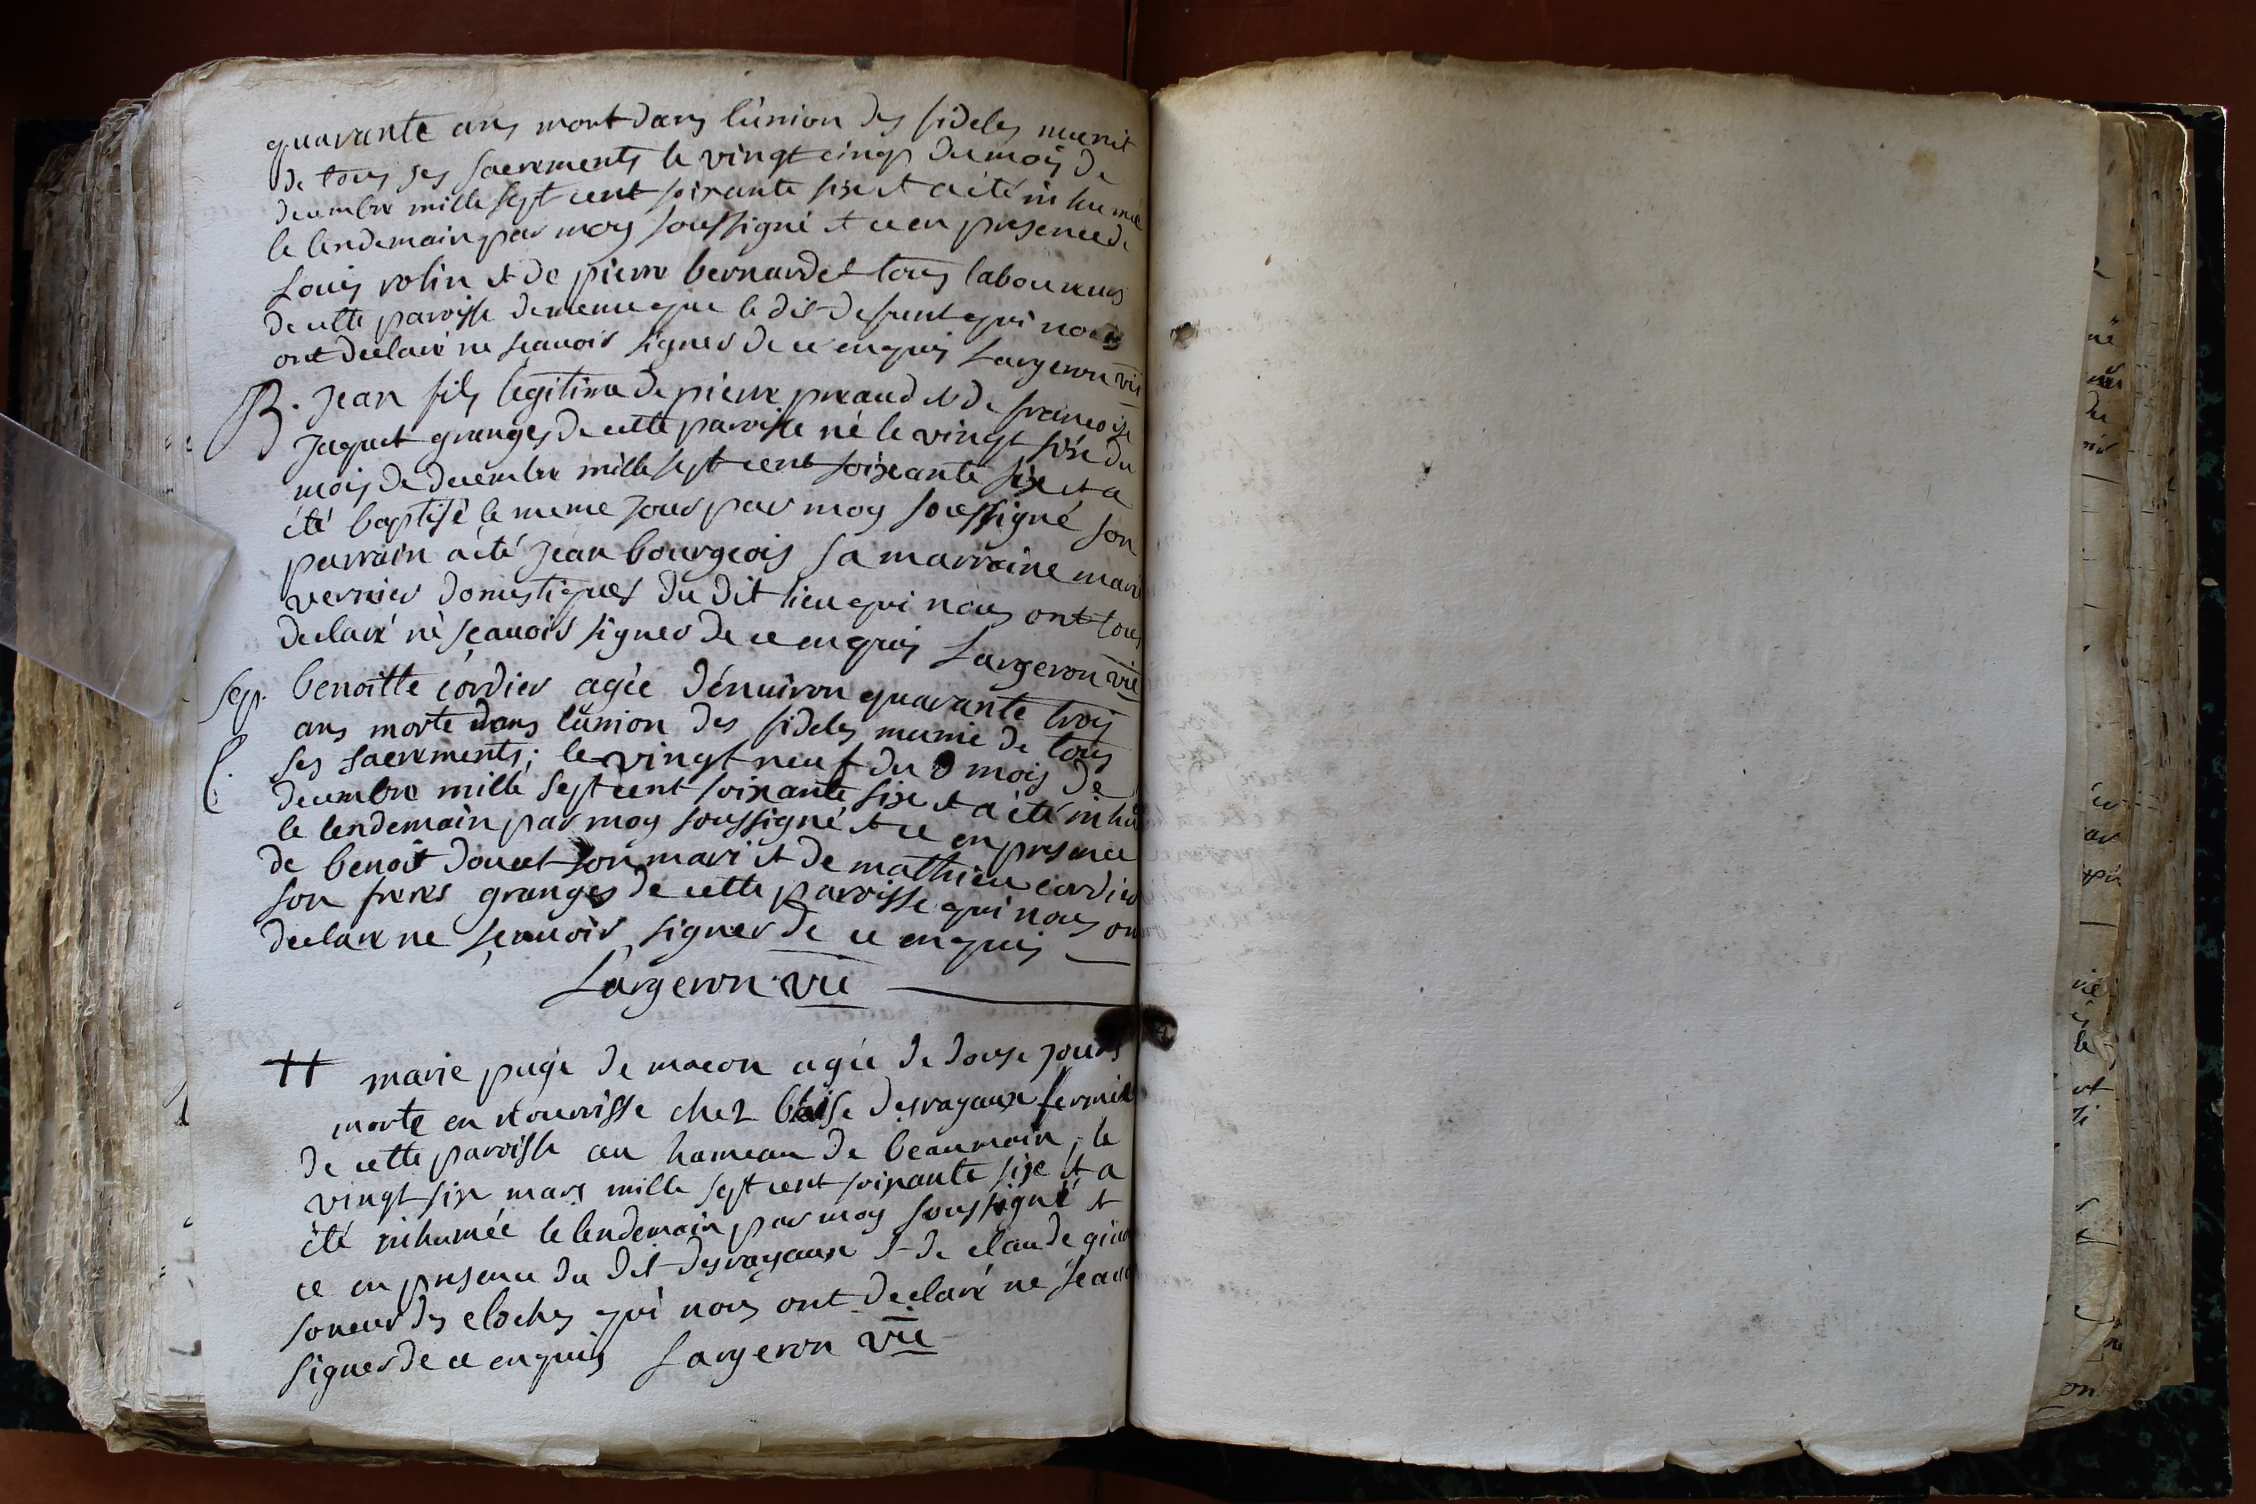 quarante ans mort dans l'union des fideles munit
de tous ses sacrements le vingt cinq du mois de
decembre mille sept cent soixante six et a été inhumé
le lendemain par moy soussigné et ce en presence de
Louis rolin et de pierre bernardet tous laboureurs
de cette paroisse de meme que le dit defunt qui nous
ont declaré ne scauoir signer de ce enquis Largeron vic
B. Jean fils legitime de pierre preaud et de francoise
Jaquet granges de cette paroisse né le vingt six du
mois de decembre mille sept cent soixante six et a
été baptisé le meme jour par moy soussigné son
parrain a été Jean bourgeois sa marraine marie
vernier domestiques du dit lieu qui nous ont tous
declaré né scauoir signer de ce enquis Largeron vic
Sep. benoitte cordier agée dénuiron quarante trois
ans morte dans l'union des fideles munie de tous
C. ses sacrements; le vingt neuf du mois de
decembre mille sept cent soixante six et a été inhu
le lendemain par moy soussigné et ce en presence
de benoit doucet son mari et de mathieu cordier
son freres granges de cette paroisse qui nous on
declare ne scauoir signer de ce enquis
Largeron vic
++ marie de macon agée de douse jours
morte en nourrisse chez blaise desrayaux fermier
de cette paroisse au hameau de beaumain; le
vingt six mars mille sept cent soixante six et a
été inhumée le lendemain par moy soussigné et
ce en presence du dit desrayaux et de claude
soneur des cloches qui nous ont declaré ne scauo
signer de ce enquis Largeron vic